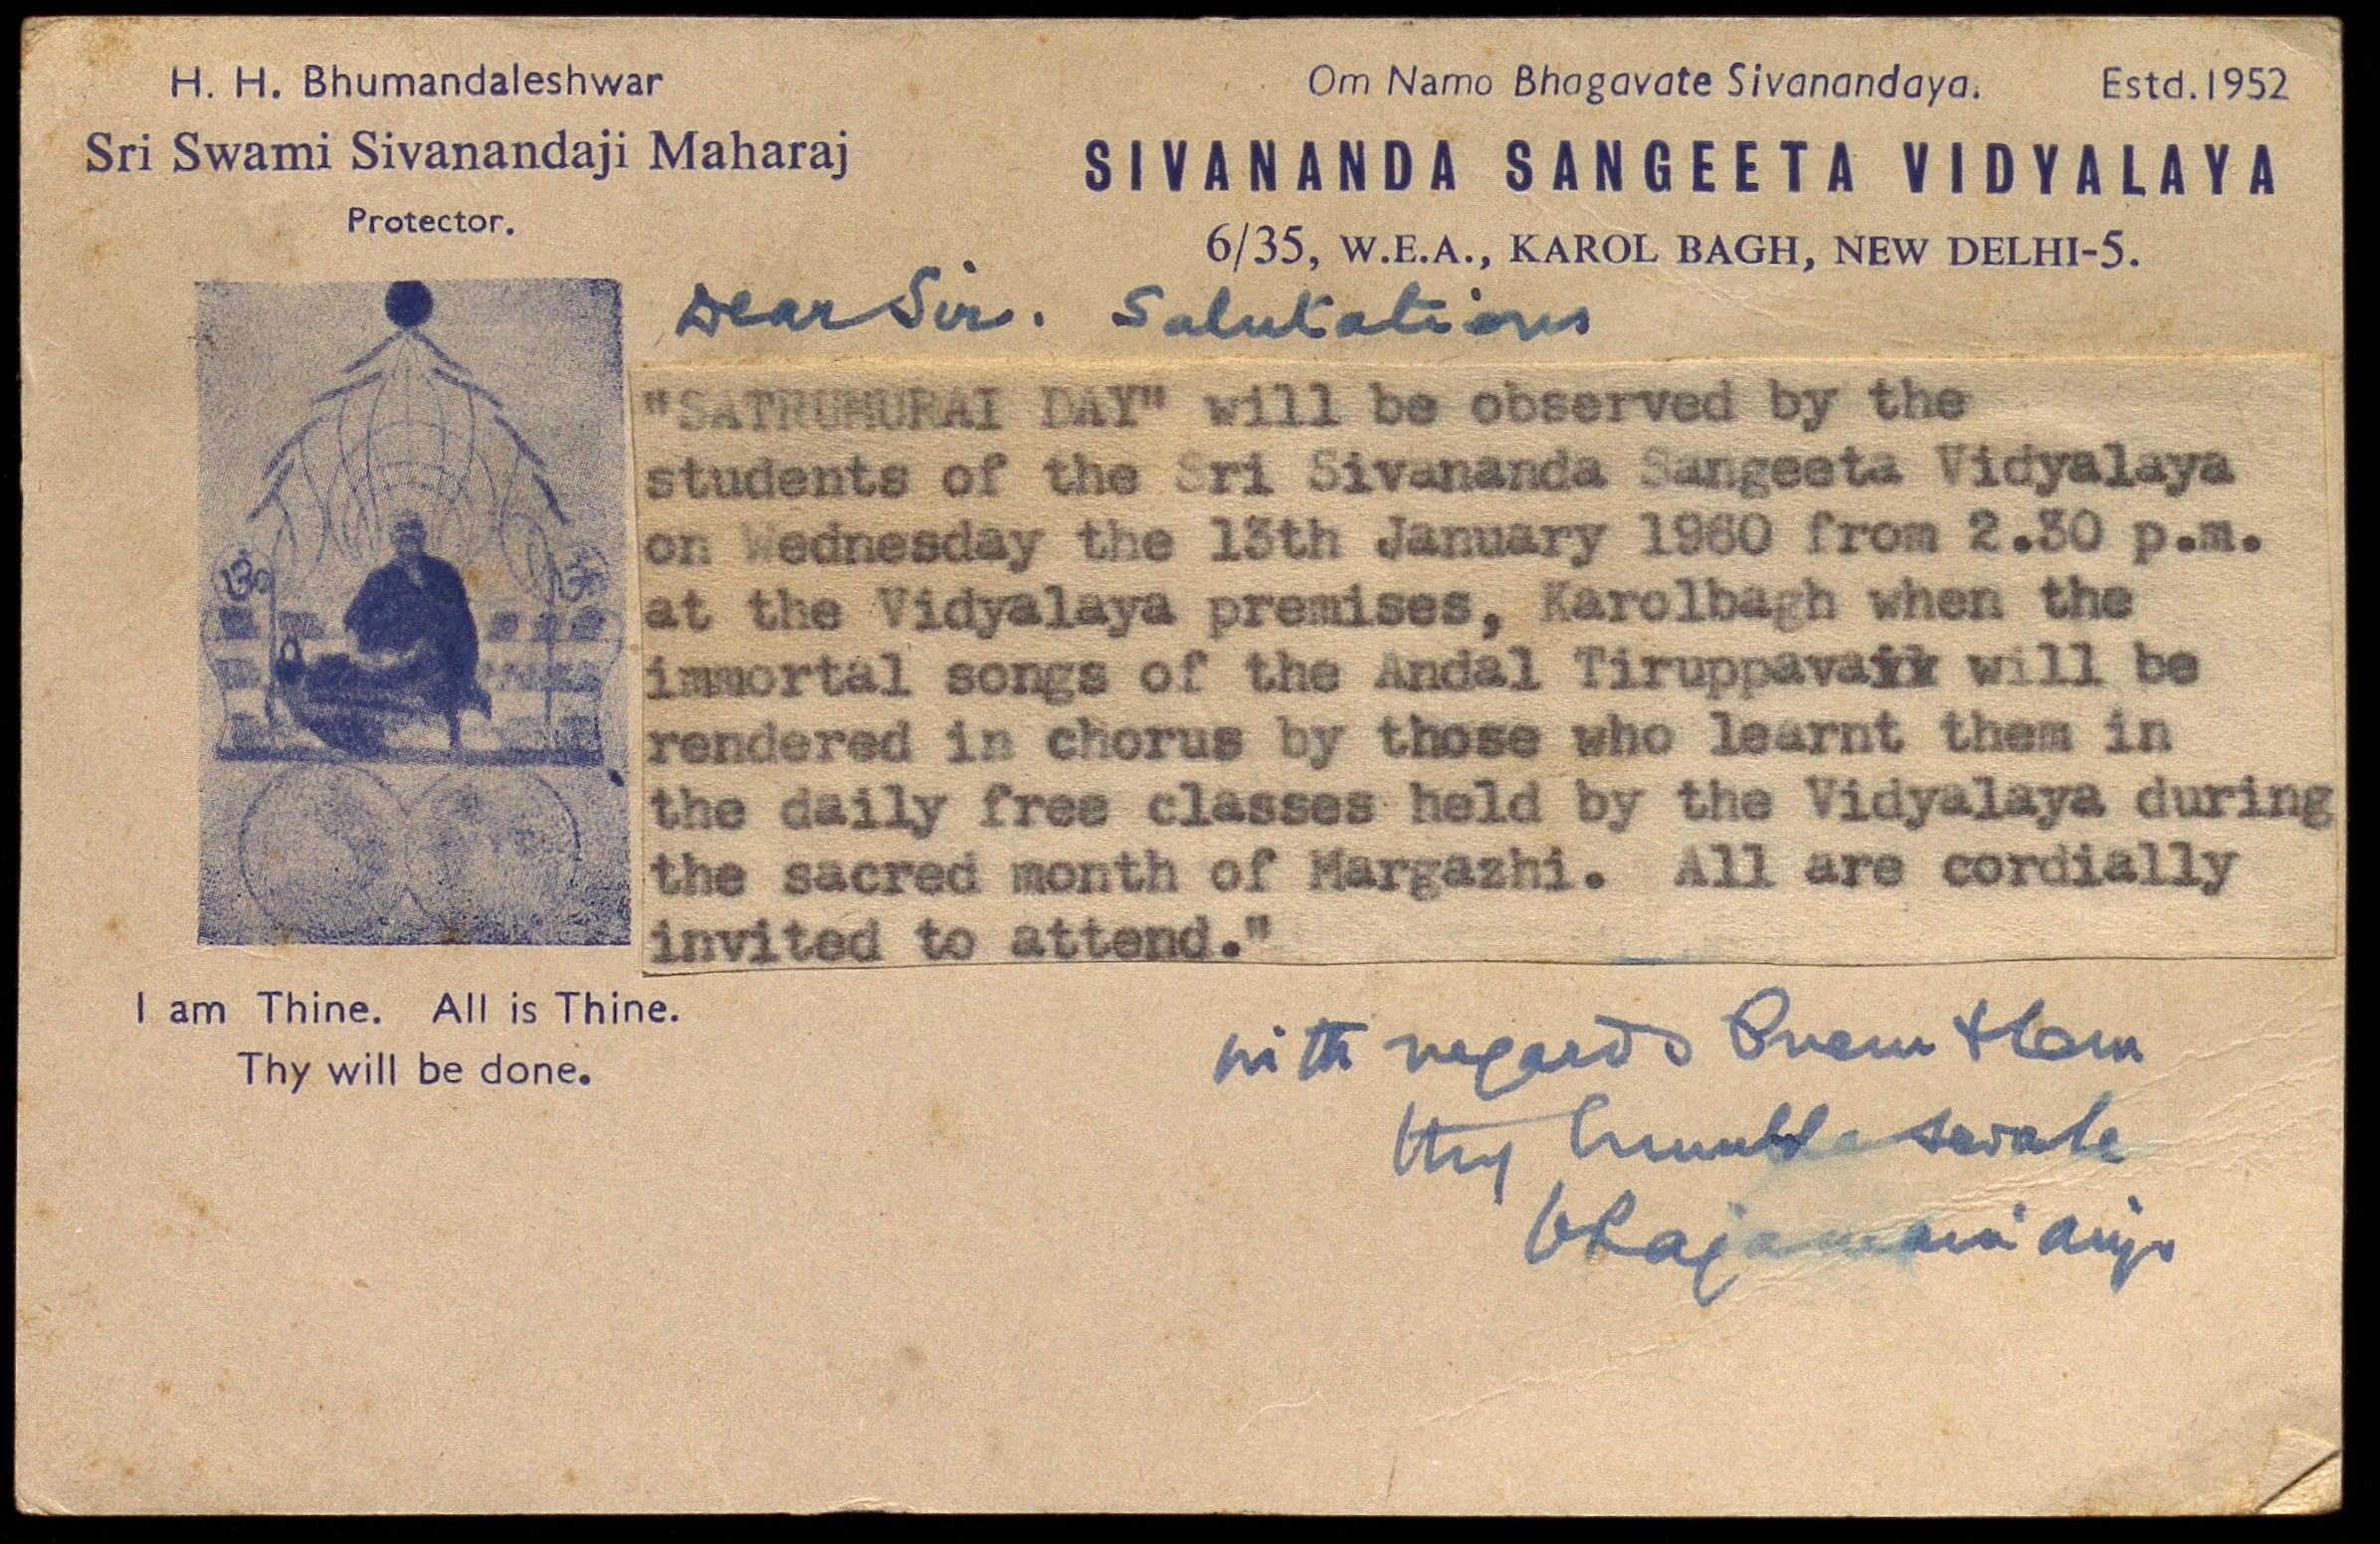 H. H. Bhumandaleshwar
Sri Swami Sivanandaji Maharaj
Protector.
Om Namo Bhagavate Sivanandaya. Estd. 1952
SIVANANDA SANGEETA VIDYALAYA
6/35, W.E.A., KAROL BAGH, NEW DELHI-5.
Dear Sir. Salutations
"SATRUMURAI DAY" will be observed by the
students of the Sri Sivananda Sangeeta Vidyalaya
on Wednesday the 13th January 1960 from 2.30 p.m.
at the Vidyalaya premises, Karolbagh when the
immortal songs of the Andal Tiruppavai will be
rendered in chorus by those who learnt them in
the daily free classes held by the Vidyalaya during
the sacred month of Margazhi. All are cordially
invited to attend."
I am Thine. All is Thine.
Thy will be done.
with regards Prem & Om
thy humble